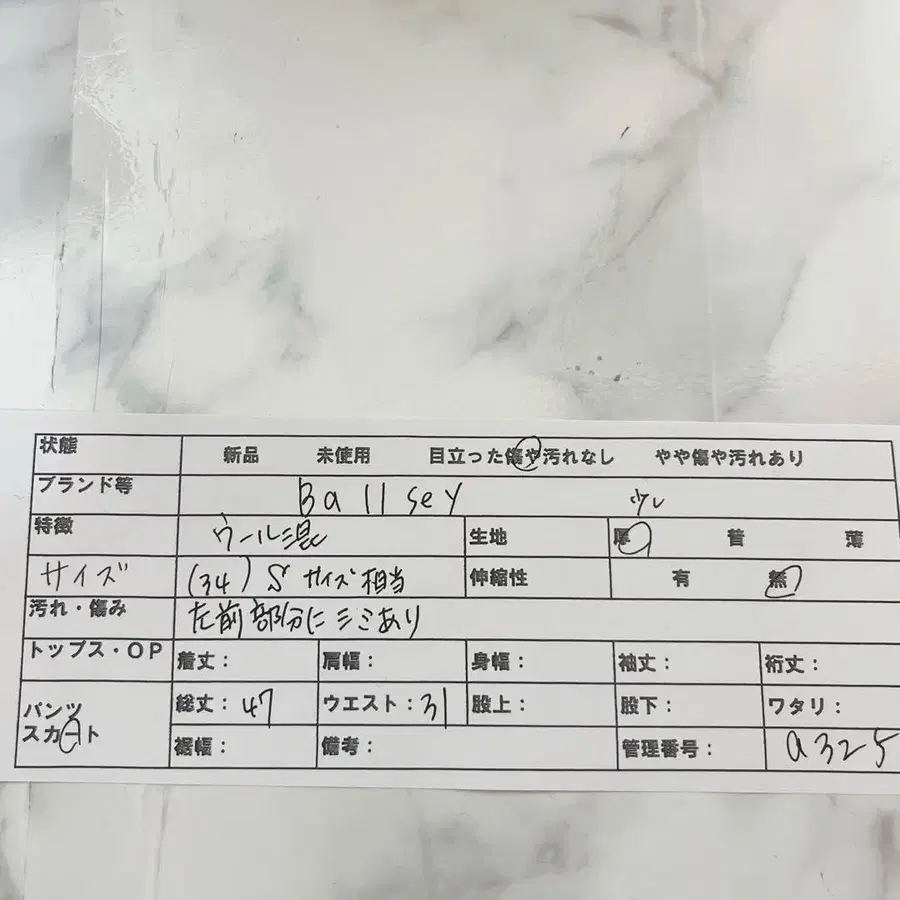 状態 新品 未使用 目立った傷や汚れなし やや傷や汚れあり
ブランド等 Ballsey 少し
特徴 ウール混 生地 厚 普 薄
サイズ (34) Sサイズ相当 伸縮性 有 無
汚れ・傷み 左前部分にシミあり
トップス・OP 着丈: 肩幅: 身幅: 袖丈: 裄丈:
パンツ 総丈: 47 ウエスト: 31 股上: 股下: ワタリ:
スカート 裾幅: 備考: 管理番号: a325